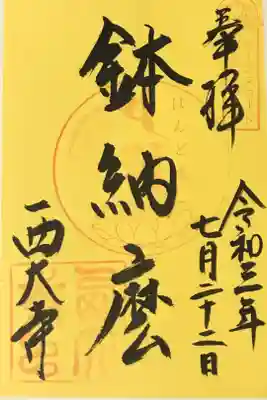 奉拝
令和三年
七月二十二日
鉢納麼
西大寺